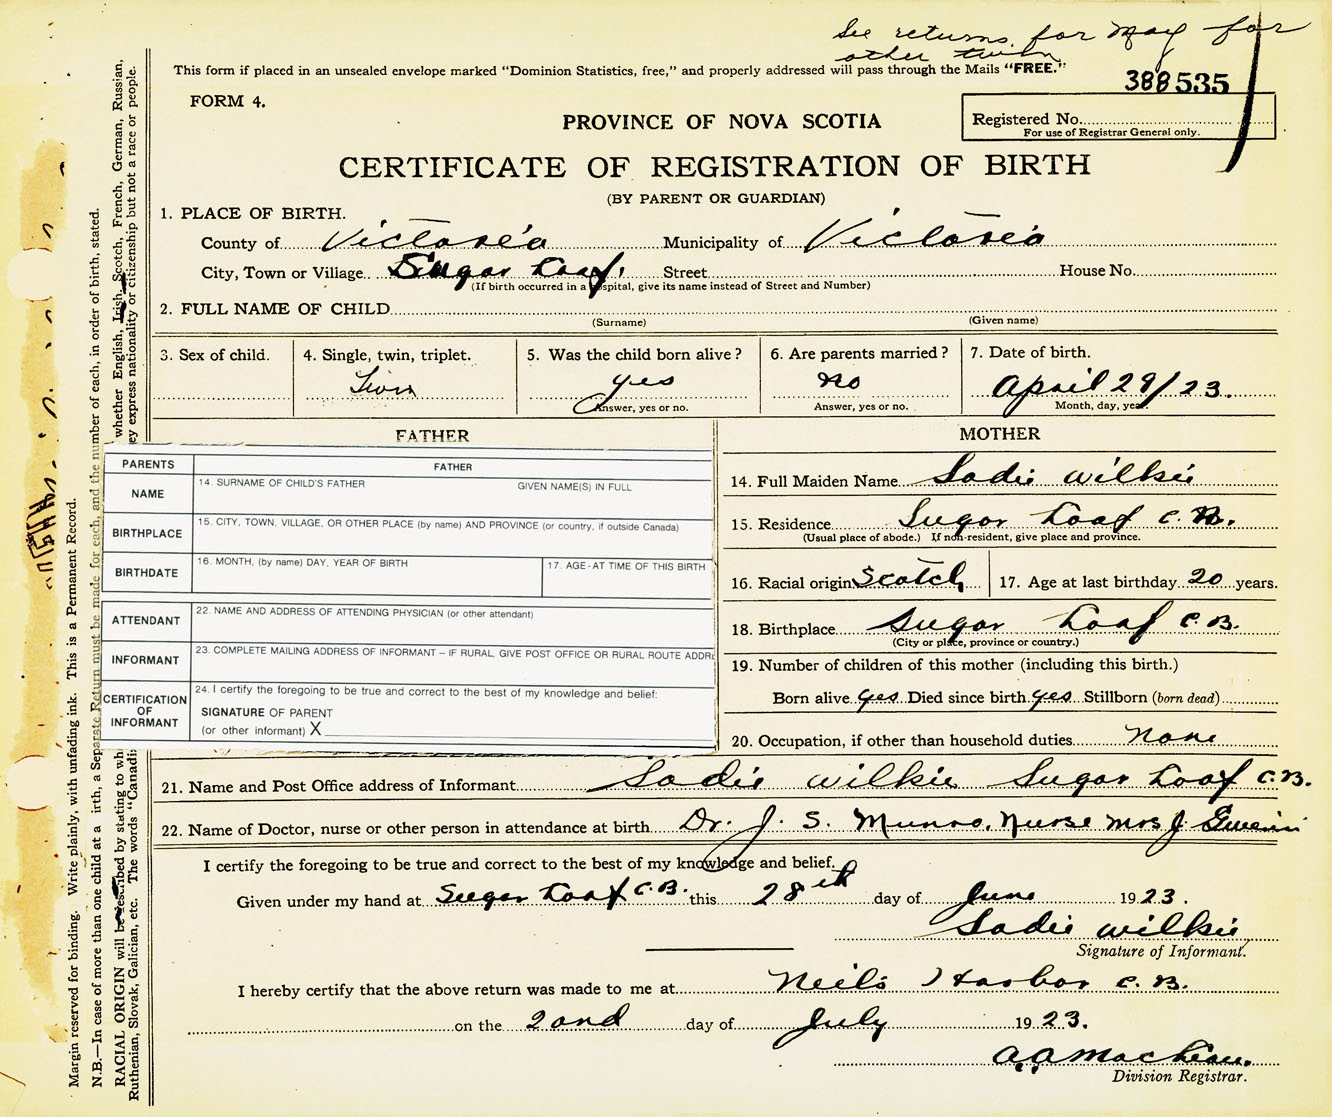 See returns for May for
other twin
This form if placed in an unsealed envelope marked "Dominion Statistics, free," and properly addressed will pass through the Mails "FREE."
388535
FORM 4.
PROVINCE OF NOVA SCOTIA
Registered No.
For use of Registrar General only.
CERTIFICATE OF REGISTRATION OF BIRTH
(BY PARENT OR GUARDIAN)
1. PLACE OF BIRTH.
County of Victoria Municipality of Victoria
City, Town or Village Sugar Loaf. Street House No.
(If birth occurred in a hospital, give its name instead of Street and Number)
2. FULL NAME OF CHILD
(Surname) (Given name)
3. Sex of child. 4. Single, twin, triplet. 5. Was the child born alive? 6. Are parents married? 7. Date of birth.
Twin yes no April 29/23.
Answer, yes or no. Answer, yes or no. Month, day, year.
FATHER MOTHER
PARENTS FATHER
NAME 14. SURNAME OF CHILD'S FATHER GIVEN NAME(S) IN FULL
BIRTHPLACE 15. CITY, TOWN, VILLAGE, OR OTHER PLACE (by name) AND PROVINCE (or country, if outside Canada)
BIRTHDATE 16. MONTH, (by name) DAY, YEAR OF BIRTH 17. AGE-AT TIME OF THIS BIRTH
ATTENDANT 22. NAME AND ADDRESS OF ATTENDING PHYSICIAN (or other attendant)
INFORMANT 23. COMPLETE MAILING ADDRESS OF INFORMANT – IF RURAL, GIVE POST OFFICE OR RURAL ROUTE ADDRE
CERTIFICATION OF INFORMANT 24. I certify the foregoing to be true and correct to the best of my knowledge and belief:
SIGNATURE OF PARENT
(or other informant) X
14. Full Maiden Name Sadie Wilkie
15. Residence Sugar Loaf C.B.
(Usual place of abode.) If non-resident, give place and province.
16. Racial origin Scotch 17. Age at last birthday 20 years.
18. Birthplace Sugar Loaf C.B.
(City or place, province or country.)
19. Number of children of this mother (including this birth.)
Born alive yes Died since birth yes Stillborn (born dead)
20. Occupation, if other than household duties none
21. Name and Post Office address of Informant Sadie Wilkie Sugar Loaf C.B.
22. Name of Doctor, nurse or other person in attendance at birth Dr. J. S. Munro, Nurse Mrs J.
I certify the foregoing to be true and correct to the best of my knowledge and belief.
Given under my hand at Sugar Loaf C.B. this 28th day of June 1923.
Sadie Wilkie
Signature of Informant.
I hereby certify that the above return was made to me at Neils Harbor C.B.
on the 2ond day of July 1923.
Division Registrar.
Margin reserved for binding. Write plainly, with unfading ink. This is a Permanent Record.
N.B.—In case of more than one child at a irth, a Separate Return must be made for each, and the number of each, in order of birth, stated.
RACIAL ORIGIN will be described by stating to wh whether English, Irish, Scotch, French, German, Russian,
Ruthenian, Slovak, Galician, etc. The words "Canadia ey express nationality or citizenship but not a race or people.